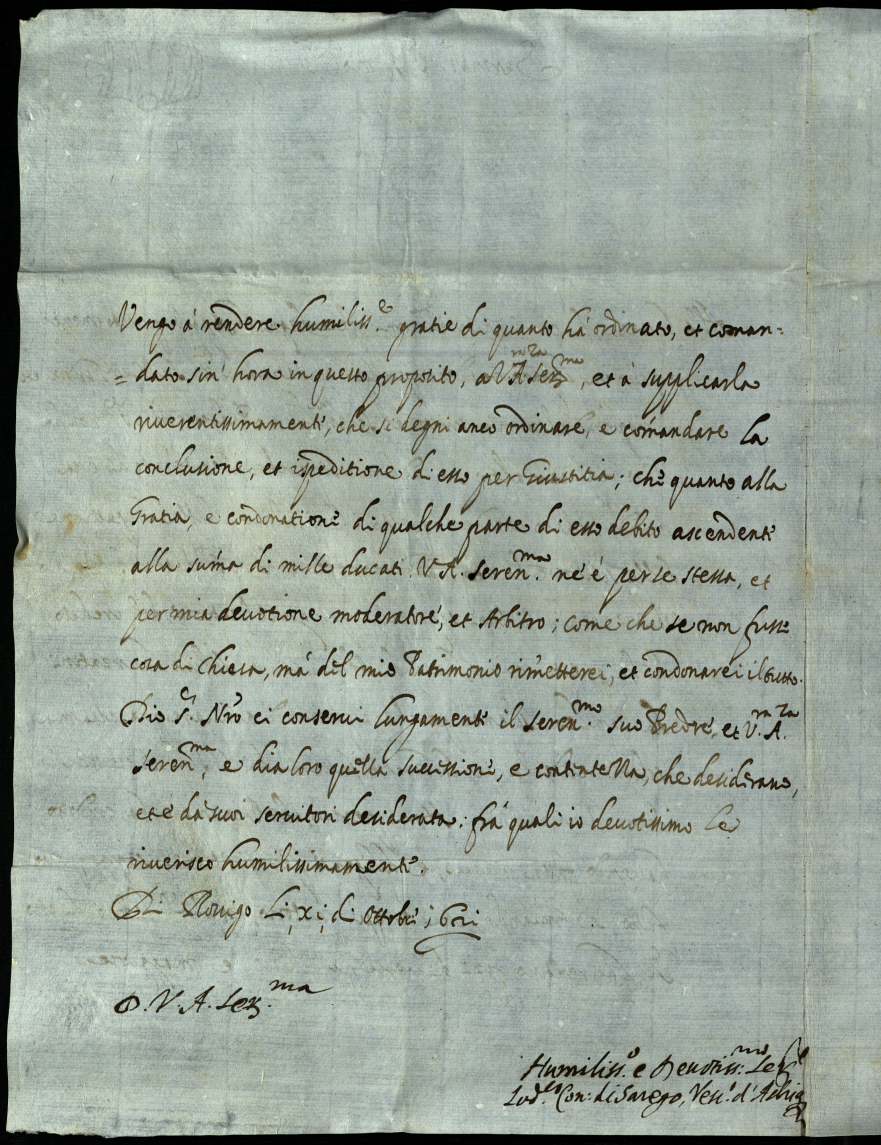 Vengo à rendere humiliss.e gratie di quanto hà ordinato, et coman=
=dato sin' hora in questo proposito, a V.ra A.za Ser.ma, et à supplicarla
riverentissimamente, che si degni anco ordinare, e comandare la
conclusione, et ispeditione di esso per Giustitia; che quanto alla
Gratia, e condonatione di qualche parte di esso debito ascendente
alla suma di mille ducati V.A. Seren.ma nè è per se stessa, et
per mia devotione moderatore, et Arbitro; come che se non fusse
cosa di Chiesa, mà del mio Patrimonio rimetterei, et condonarei il tutto.
Dio S.r Nro ci conservi lungamente il Seren.mo suo Predre, et V.ra A.za
Seren.ma, e dia loro quella successione, e contentezza, che desiderano,
et è da suoi servitori desiderata; frà quali io devotissimo le
riverisco humilissimamente.
Di Rovigo Li xi di Ottobre
D. V. A. Ser.ma
Humiliss.o e Devotiss.mo
Lod.co Con: di Sarego, Vesc.o d'Adria